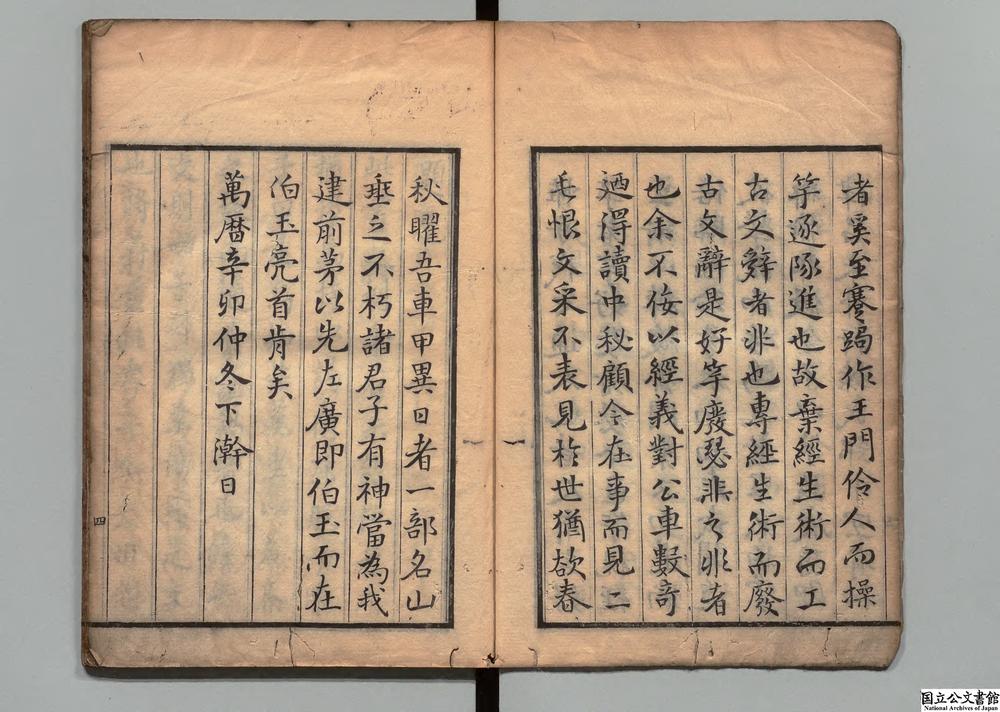 者奚至蹇跼作王門伶人而操
竽逐隊進也故棄經生術而工
古文辭者非也專經生術而廢
古文辭是好竽廢瑟非之非者
也余不佞以經義對公車數奇
廼得讀中秘顧今在事而見二
毛恨文采不表見於世猶欲春
秋曜吾車甲異日者一部名山
垂之不朽諸君子有神當為我
建前茅以先左廣即伯玉而在
伯玉亮首肯矣
萬曆辛卯仲冬下澣日
四
国立公文書館
National Archives of Japan